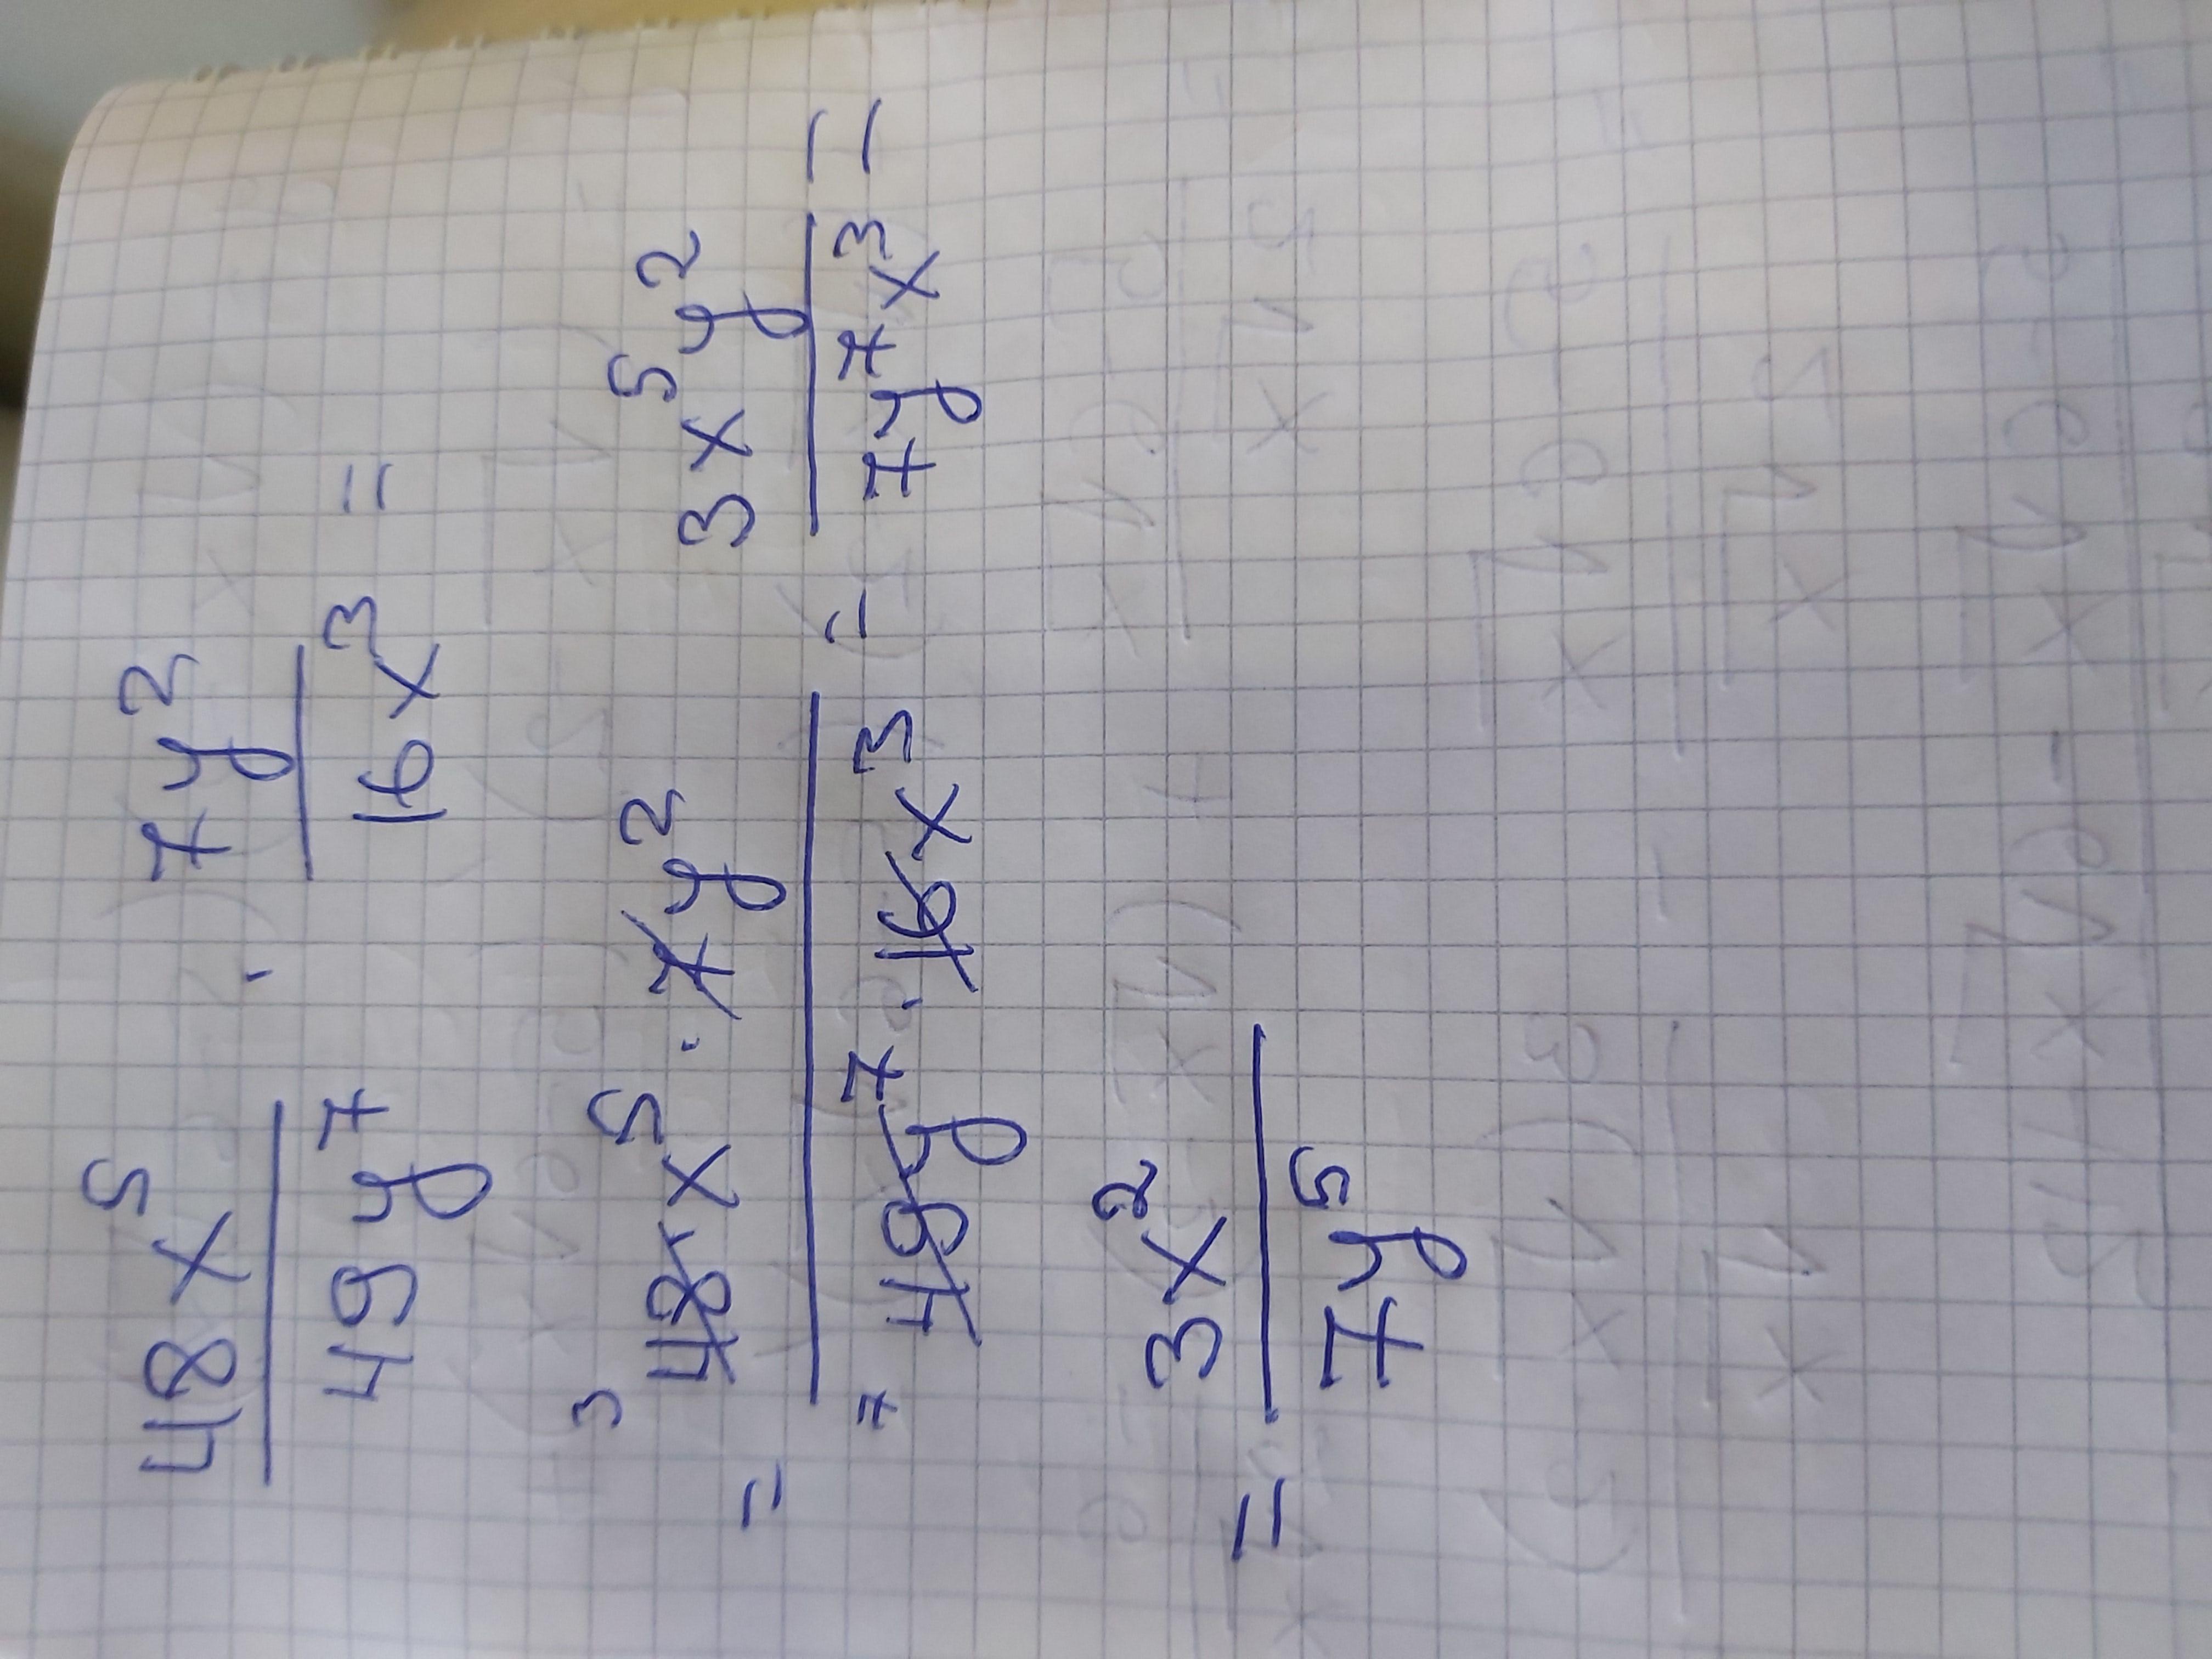 48x⁵/49y⁷ · 7y²/16x³ =
= ³48x⁵ · 7y²/⁷49y⁷ · 16x³ = 3x⁵y²/7y⁷x³ =
= 3x²/7y⁵